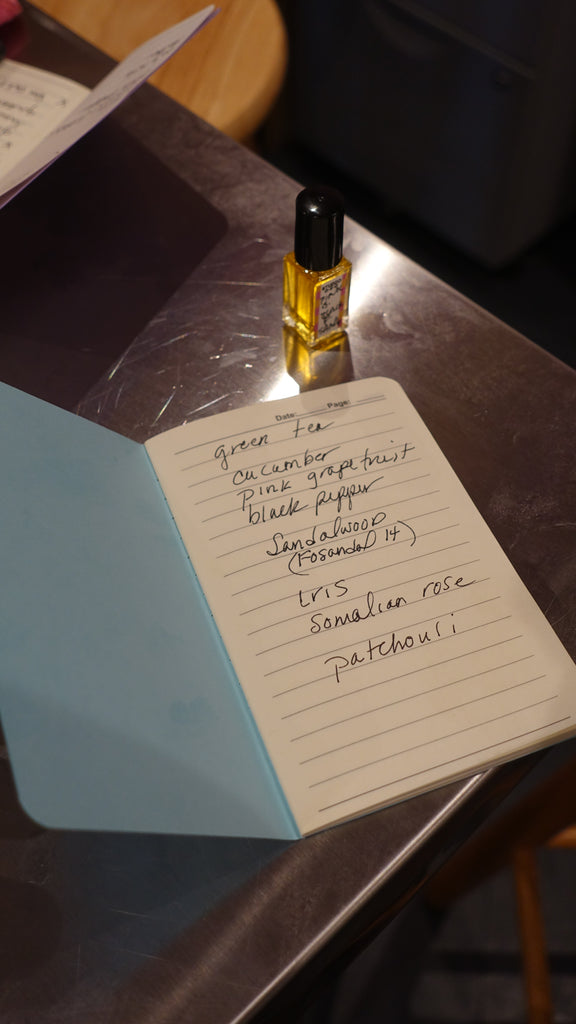 Date: Page:
green tea
cucumber
pink grapefruit
black pepper
Sandalwood
(Fosandal 14)
Iris
Somalian rose
patchouli